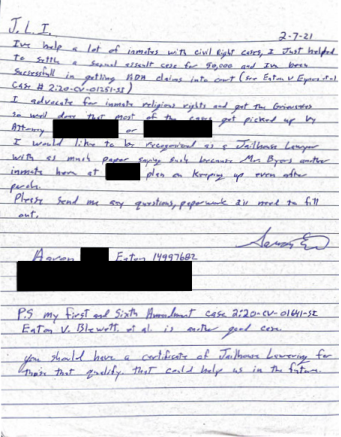 J.L.I. 2-7-21
I've help a lot of inmates with civil Right cases, I Just helped
to settle a sexual assault case for 90,000 and I've been
successfull in getting ADA claims into court (see Eaton v Eyerontal
Case # 2:20-cv-01251-SI)
I advocate for inmate religious rights and get the Grievances
so well done that most of the cases get picked up by
Attorney or
I would like to be recognized as a Jailhouse Lawyer
with as much paper saying such because Mr. Byers another
inmate here at plan on keeping up even after
parole.
Please send me any questions, paperwork I'll need to fill
out.
Aaron Eaton 14997682
P.S. my First and Sixth Amendment case 2:20-cv-01641-SI
Eaton v. Blewett, et al. is another good case.
you should have a certificate of Jailhouse Lawering for
those that qualify. that could help us in the future.